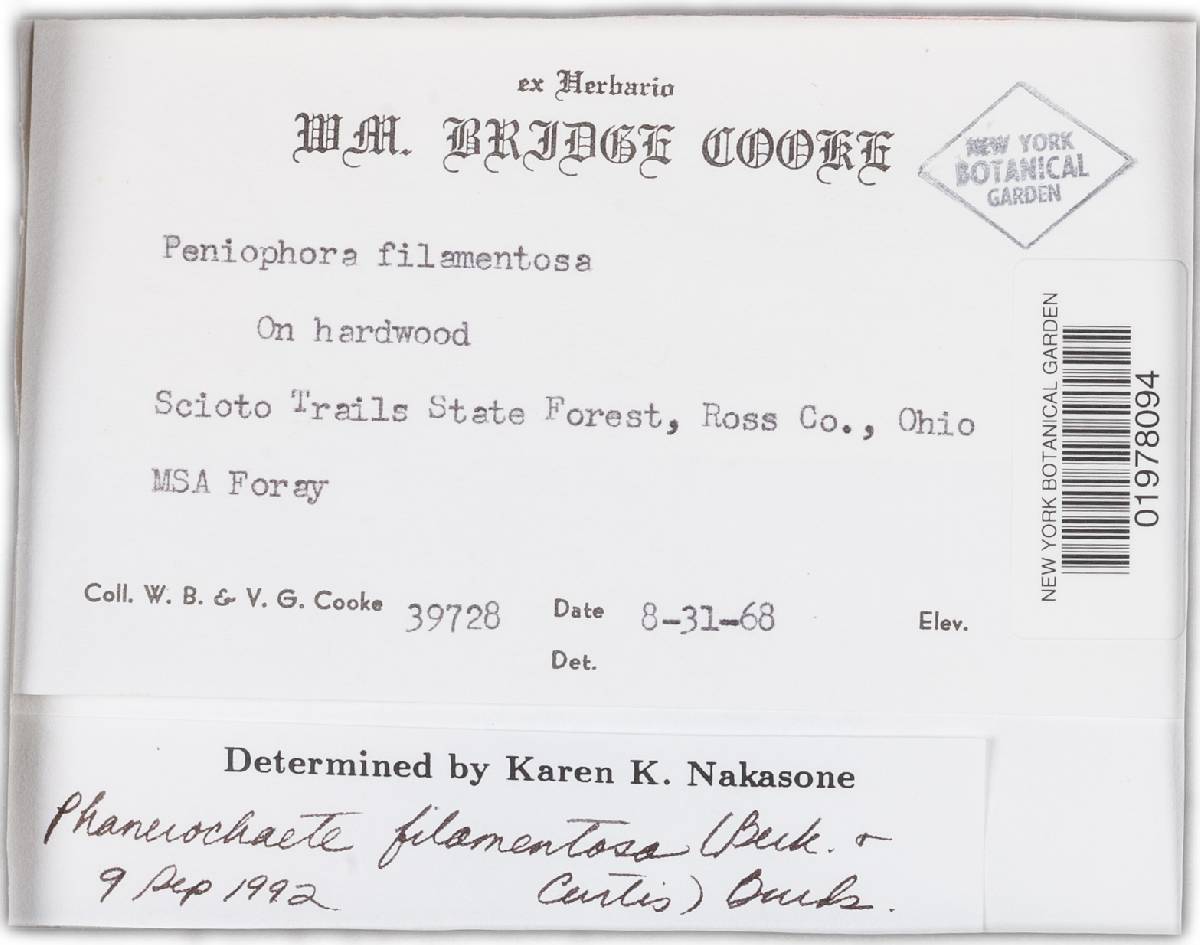 ex Herbario
WM. BRIDGE COOKE
NEW YORK
BOTANICAL
GARDEN
Peniophora filamentosa
On hardwood
Scioto Trails State Forest, Ross Co., Ohio
MSA Foray
NEW YORK BOTANICAL GARDEN
01978094
Coll. W. B. & V. G. Cooke 39728 Date 8-31-68 Elev.
Det.
Determined by Karen K. Nakasone
Phanerochaete filamentosa (Berk. &
9 Sep 1992 Curtis) Burds.